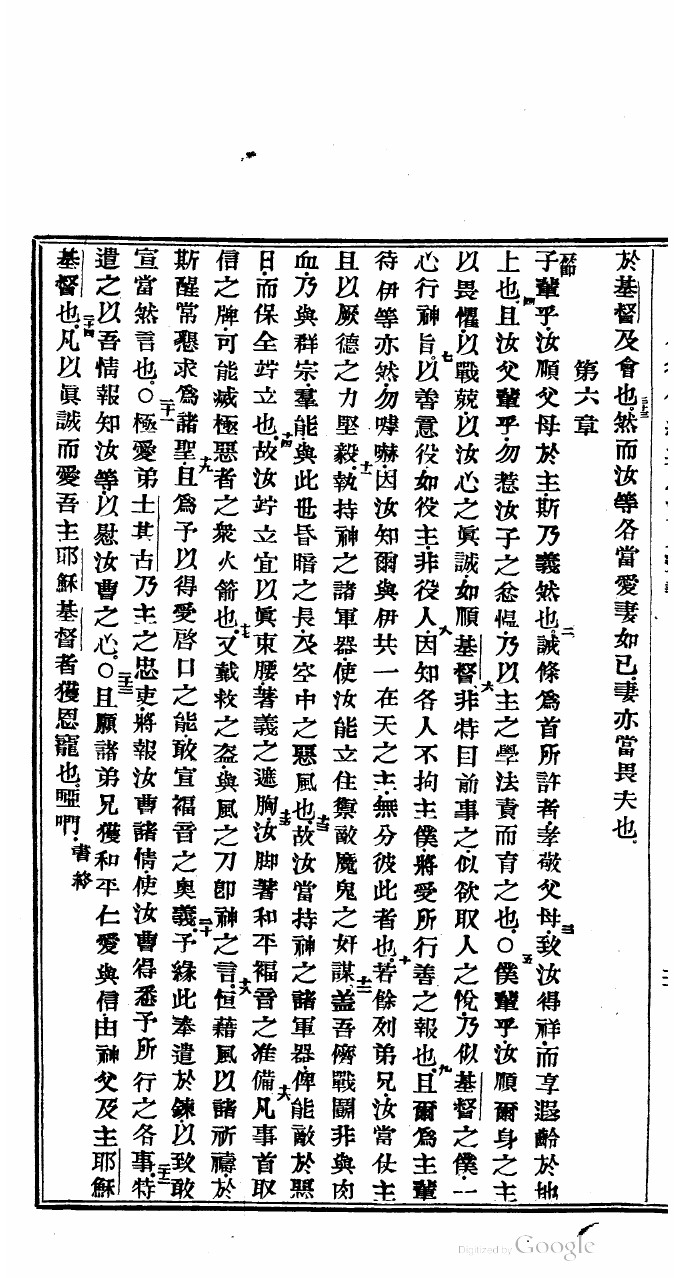 於基督及會也三十三然而汝等各當愛妻如已妻亦當畏夫也
第六章
一節子輩乎汝順父母於主斯乃義然也二誠條為首所許者孝敬父母三致汝得祥而享遐齡於地
上也四且汝父輩乎勿惹汝子之忿慍乃以主之學法責而育之也○五僕輩乎汝順爾身之主
以畏懼以戰兢以汝心之眞誠如順基督六非特目前事之似欲取人之悅乃似基督之僕一
心行神旨七以善意役如役主非役人八因知各人不拘主僕將愛所行善之報也九且爾為主輩
待伊等亦然勿嘑嚇因汝知爾與伊共一在天之主無分彼此者也十若餘列弟兄汝當仗主
且以厥德之力堅毅十一執持神之諸軍器使汝能立住禦敵魔鬼之奸謀十二蓋吾儕戰鬬非與肉
血乃與群宗羣能與此世昏暗之長及空中之惡風也十三故汝當持神之諸軍器俾能敵於惡
日而保全竚立也十四故汝竚立宜以眞束腰著義之遮胸十五汝脚著和平福音之准備十六凡事首取
信之牌可能滅極惡者之衆火箭也十七又戴救之盔與風之刀卽神之言十八恒藉風以諸祈禱於
斯醒常懇求為諸聖十九且為予以得受啓口之能敢宣福音之奧義二十予緣此奉遣於鍊以致敢
宣當然言也○二十一極愛弟士其古乃主之忠吏將報汝曹諸情使汝曹得悉予所行之各事二十二特
遣之以吾情報知汝等以慰汝曹之心○二十三且願諸弟兄獲和平仁愛與信由神父及主耶穌
基督也二十四凡以眞誠而愛吾主耶穌基督者獲恩寵也啞呵書終
Digitized by Google